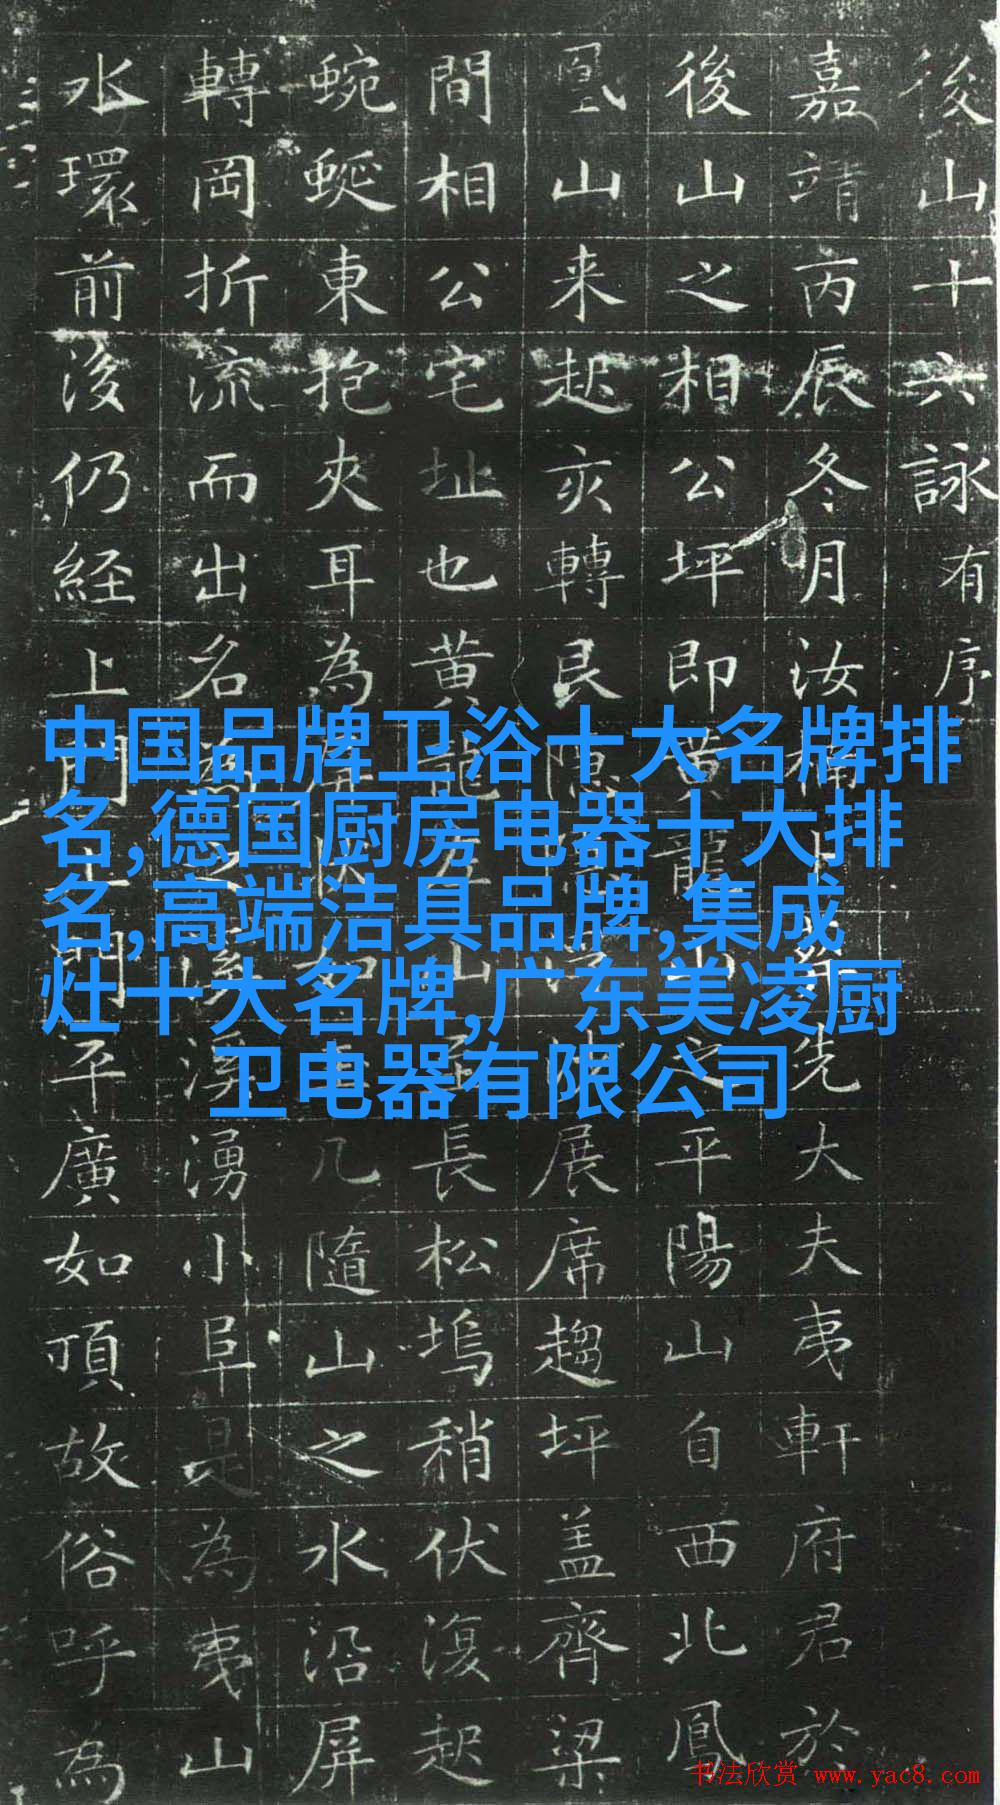 後山十六詠有序
嘉靖丙辰冬月汝楠先大夫夷軒府君於
後山之相公坪即黄龍山之平陽山自西北鳳
凰山来起亥轉艮隱展席趨坪盖齊梁
間相公宅址也黄龍山長松塢稍伏復起
蜿蜒東抱夾耳為屏几隨山之水沿屏
轉岡折流而出名為溪湧小阜是為夷山
水環前後仍経上門上門平廣如頂故俗呼為
中国品牌卫浴十大名牌排
名,德国厨房电器十大排
名,高端洁具品牌,集成
灶十大名牌,广东美凌厨
卫电器有限公司
书法欣赏 www.yac8.com